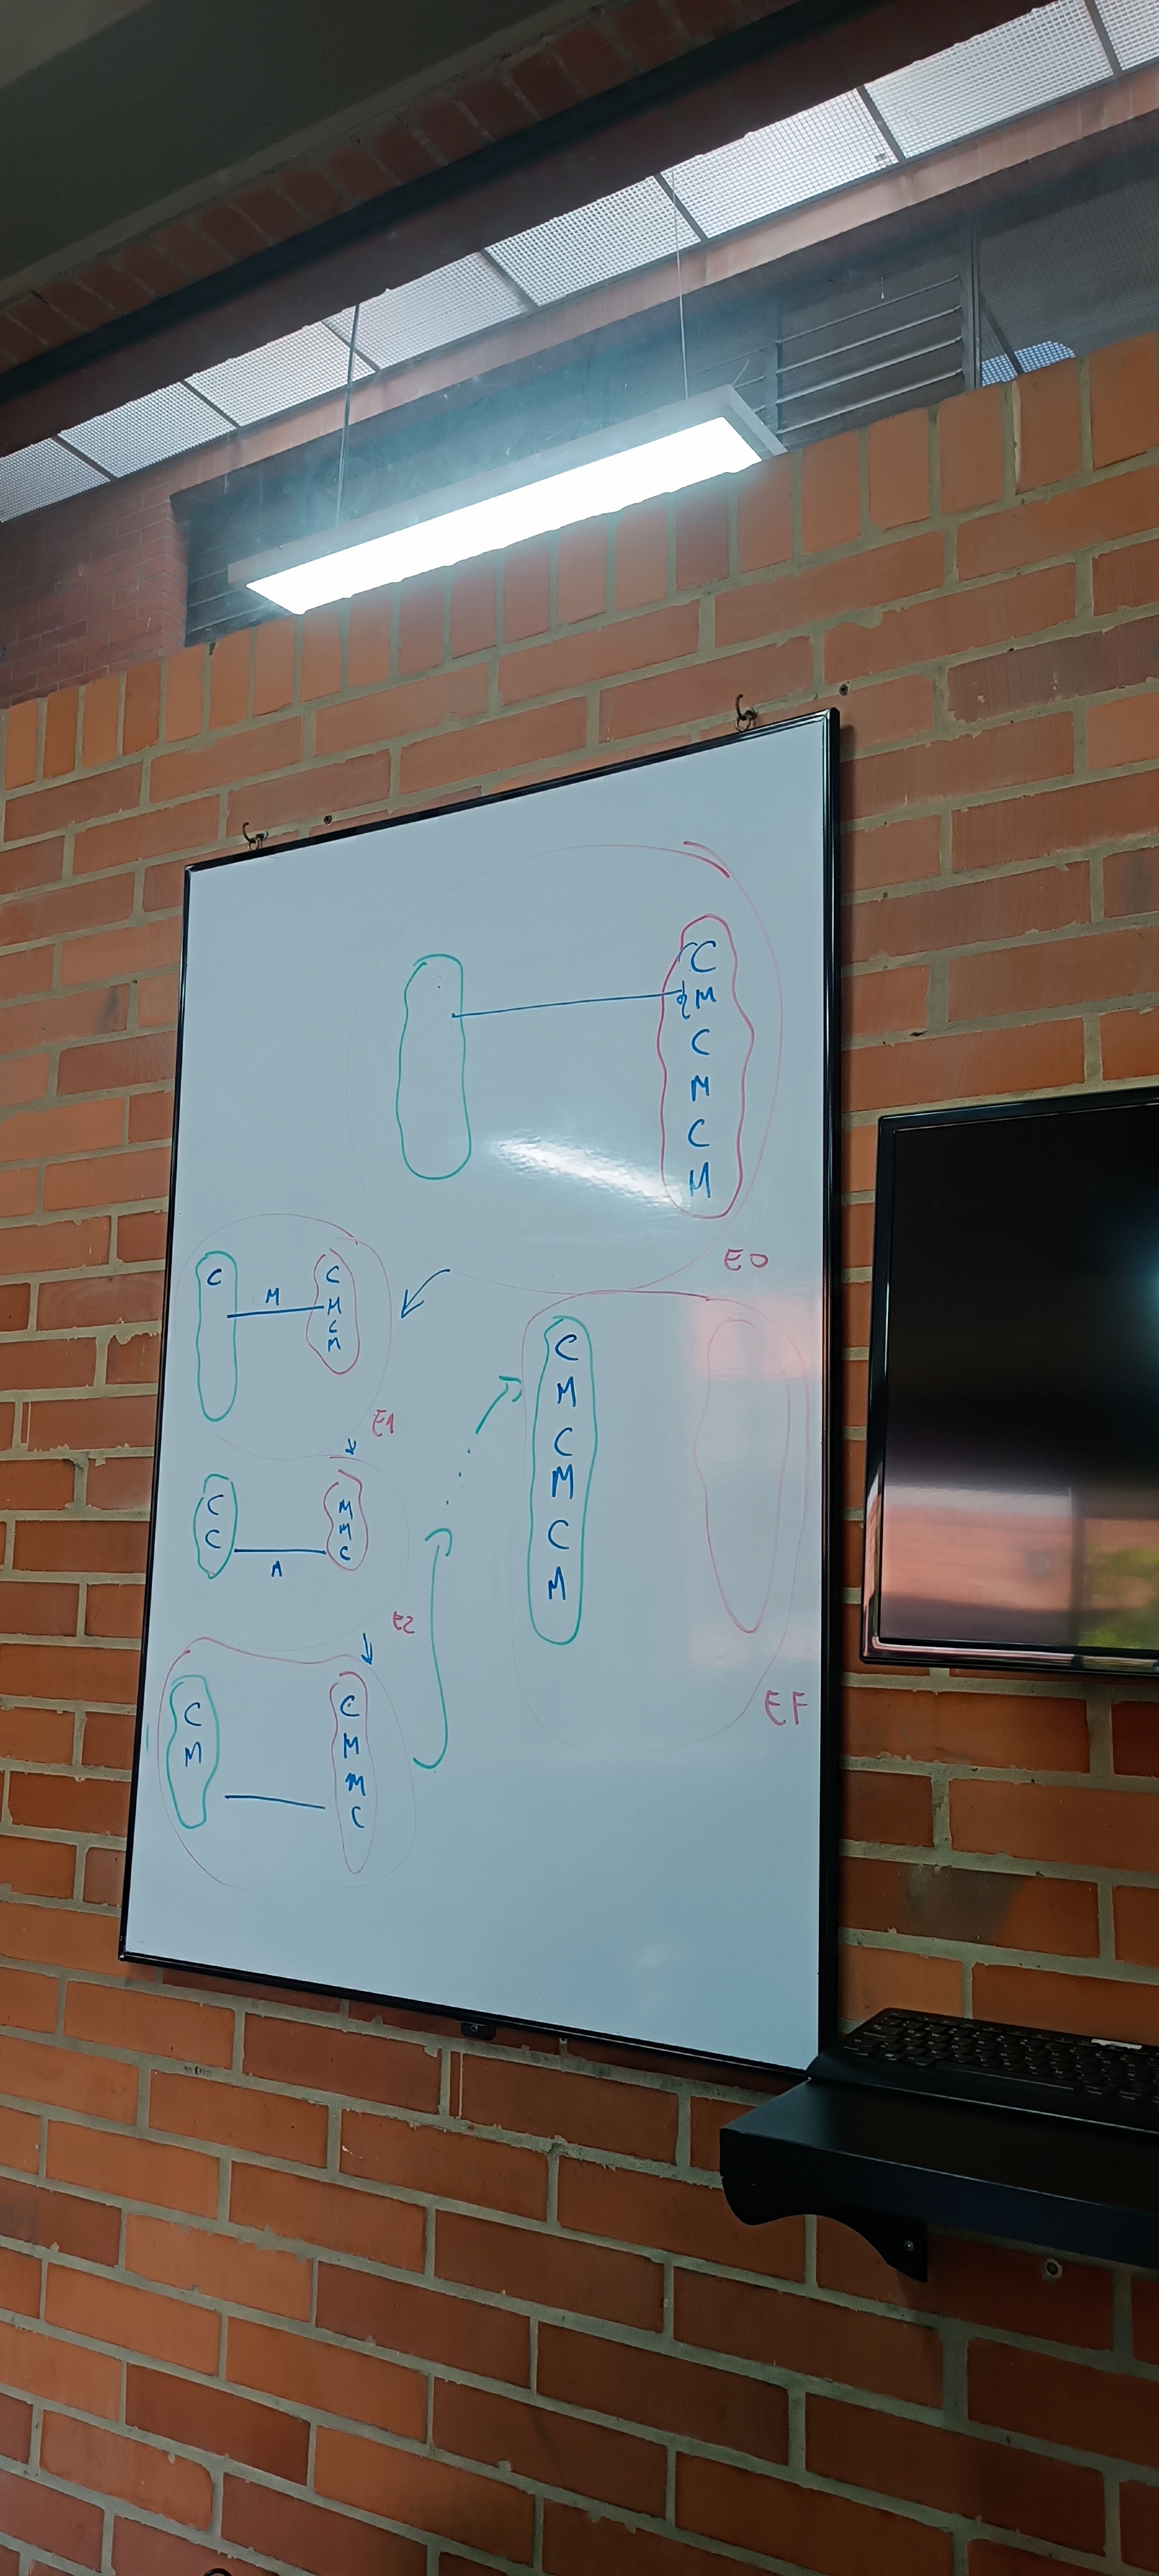 C
M
C
M
C
M
E0
C
M
C
M
C
M
E1
C
C
M
M
C
E2
C
M
C
M
M
C
C
M
C
M
C
M
EF